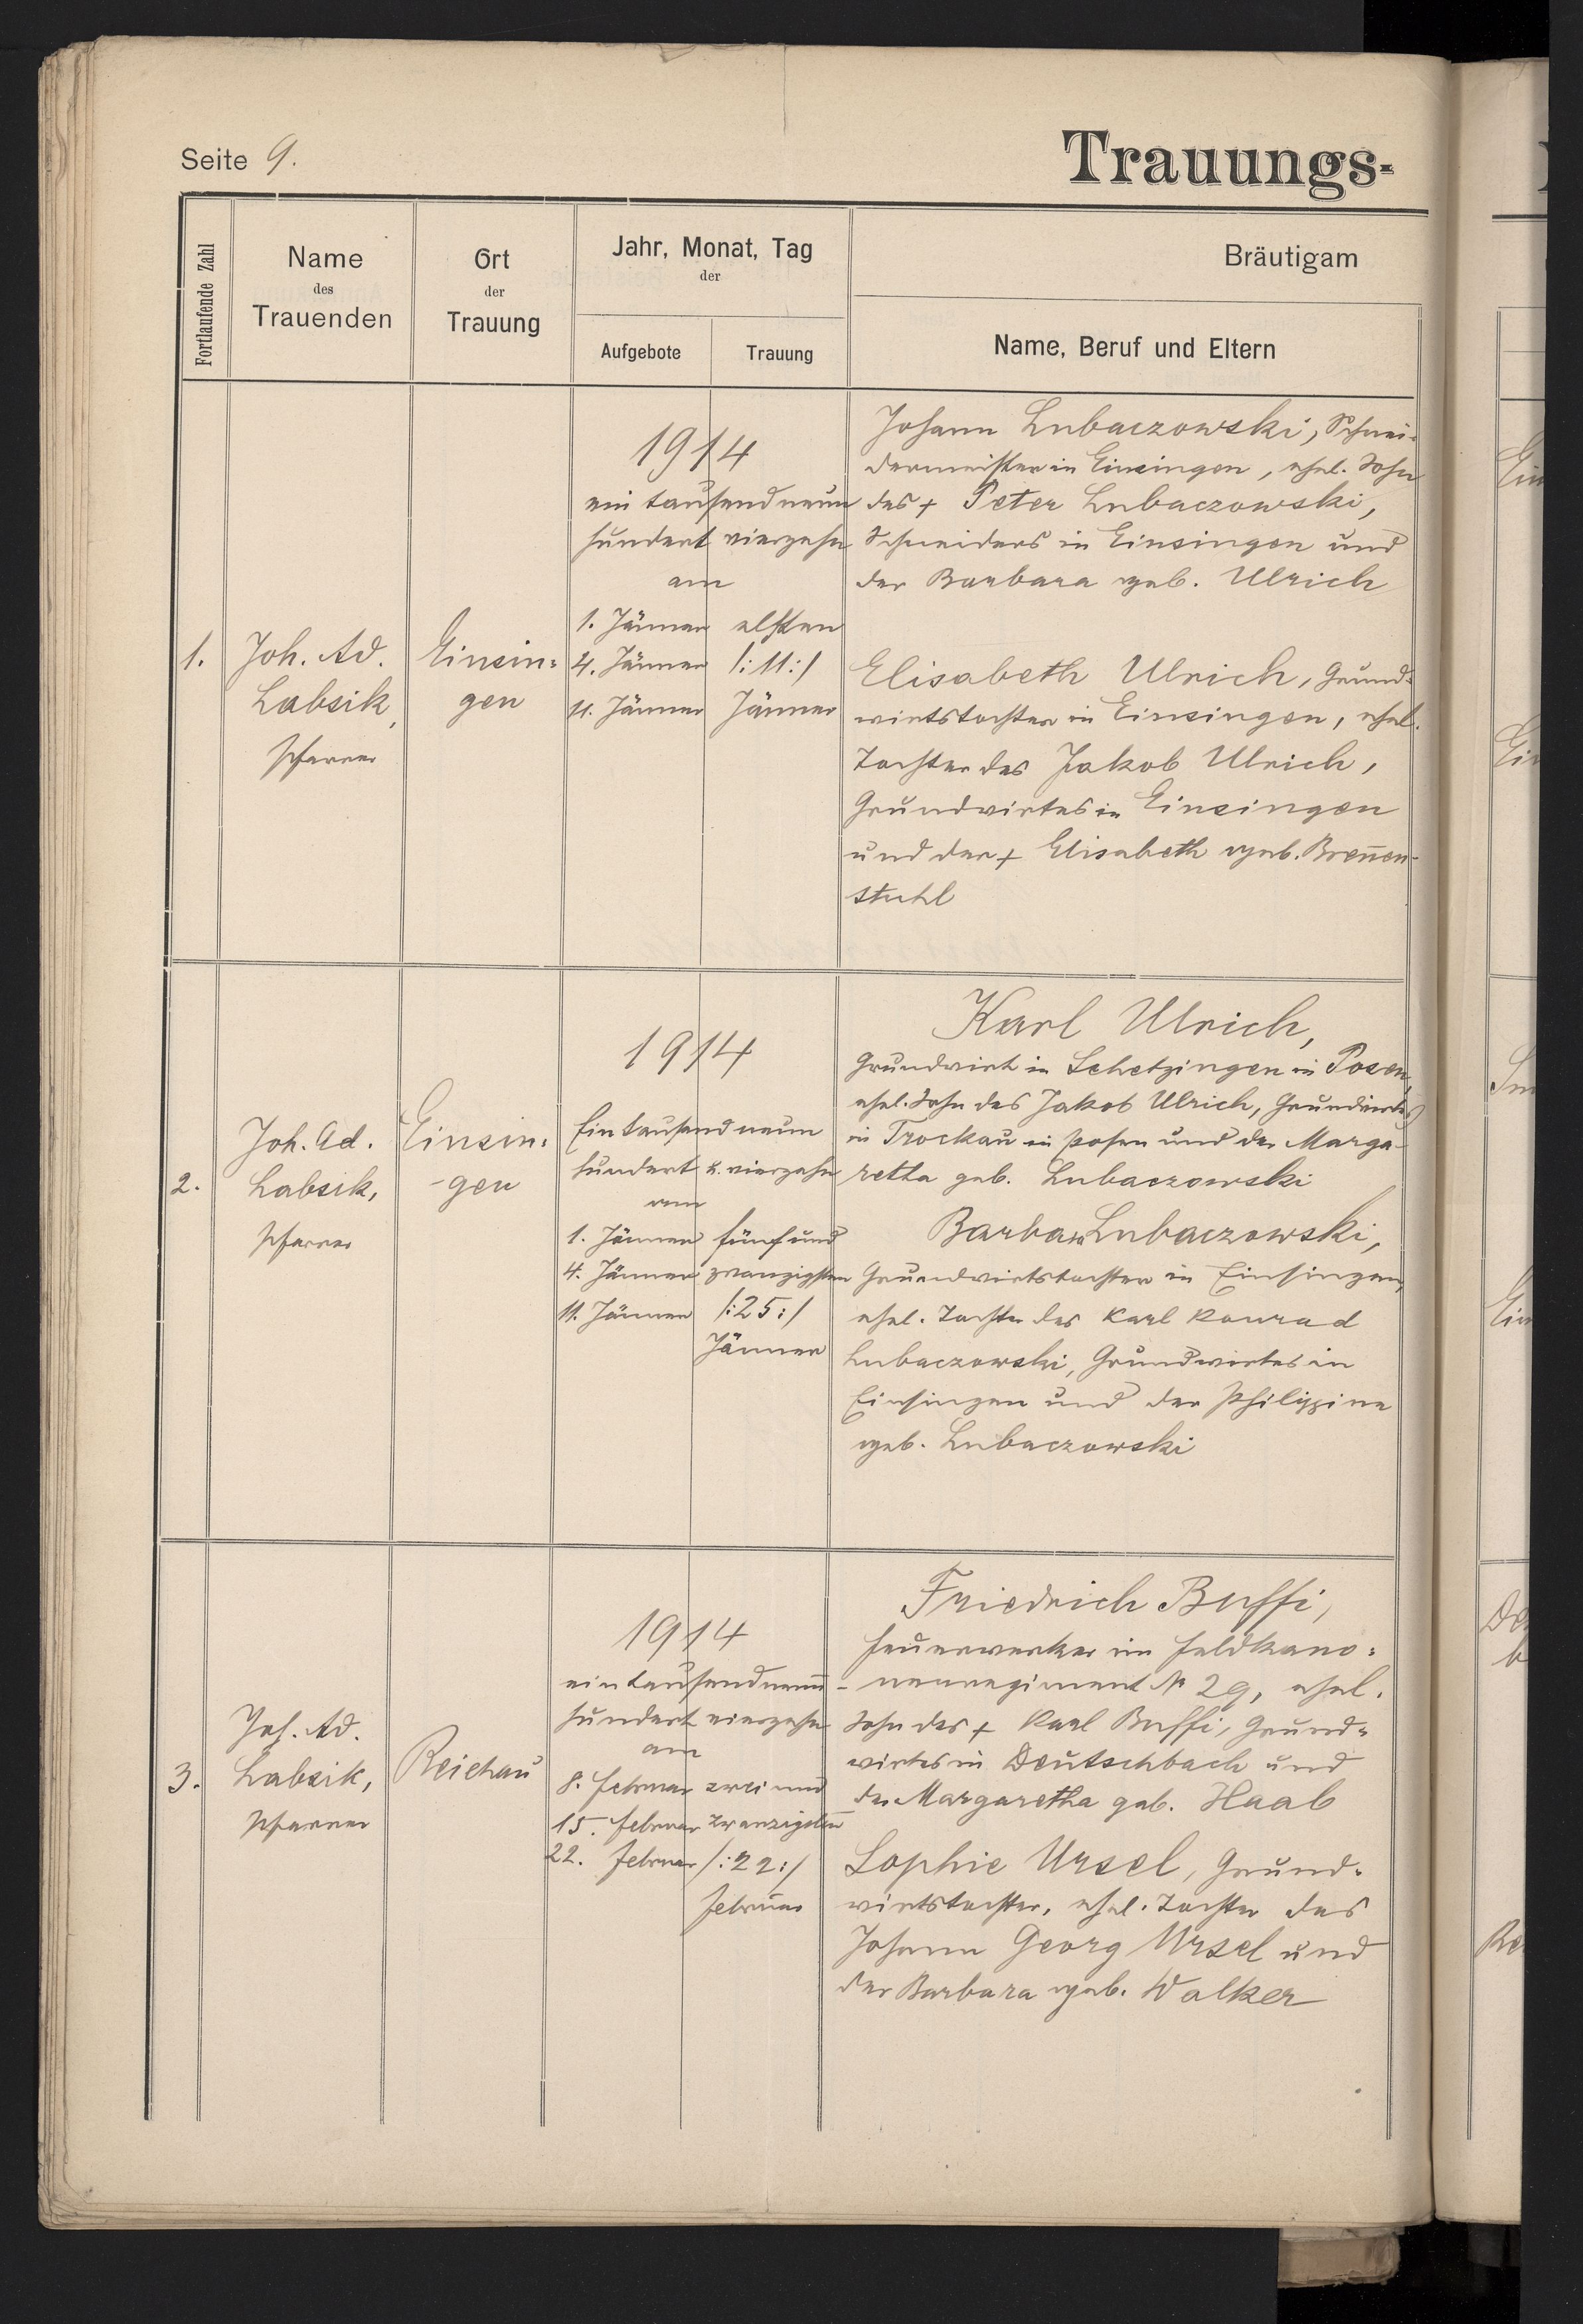 Seite 9.
Trauungs-
Fortlaufende Zahl
Name
des
Trauenden
Ort
der
Trauung
Jahr, Monat, Tag
der
Aufgebote
Trauung
Bräutigam
Name, Beruf und Eltern
1.
Joh. Ad.
Labsik,
Pfarrer
Einsin=
gen
1914
ein tausend neun
hundert vierzehn
am
1. Jänner
4. Jänner
11. Jänner
elften
/:11:/
Jänner
Johann Lubaczowski, Schnei-
dermeister in Einsingen, ehel. Sohn
des + Peter Lubaczowski,
Schneiders in Einsingen und
der Barbara geb. Ulrich
Elisabeth Ulrich, Grund=
wirtstochter in Einsingen, ehel.
Tochter des Jakob Ulrich,
Grundwirtes in Einsingen
und der + Elisabeth geb. Breñen-
stuhl
2.
Joh. Ad.
Labsik,
Pfarrer
Einsin=
-gen
1914
Eintausend neun
hundert u. vierzehn
am
1. Jänner
4. Jänner
11. Jänner
fünfund
zwanzigsten
/:25:/
Jänner
Karl Ulrich,
Grundwirt in Schetzingen in Posen,
ehel. Sohn des Jakob Ulrich, Grundwirtes
in Trockau in Posen und der Marga-
retha geb. Lubaczowski
Barbara Lubaczowski,
Grundwirtstochter in Einsingen,
ehel. Tochter des Karl Konrad
Lubaczowski, Grundwirtes in
Einsingen und der Philippine
geb. Lubaczowski
3.
Joh. Ad.
Labsik,
Pfarrer
Reichau
1914
eintausendneun-
hundert vierzehn
am
8. Februar
15. Februar
22. Februar
zwei und
zwanzigsten
/:22:/
Februar
Friedrich Buffi,
Feuerwerker im Feldkano=
nenregiment № 29, ehel.
Sohn des + Karl Buffi, Grund=
wirtes in Deutschbach und
der Margaretha geb. Haab
Sophie Ursel, Grund=
wirtstochter, ehel. Tochter des
Johann Georg Ursel und
der Barbara geb. Walker